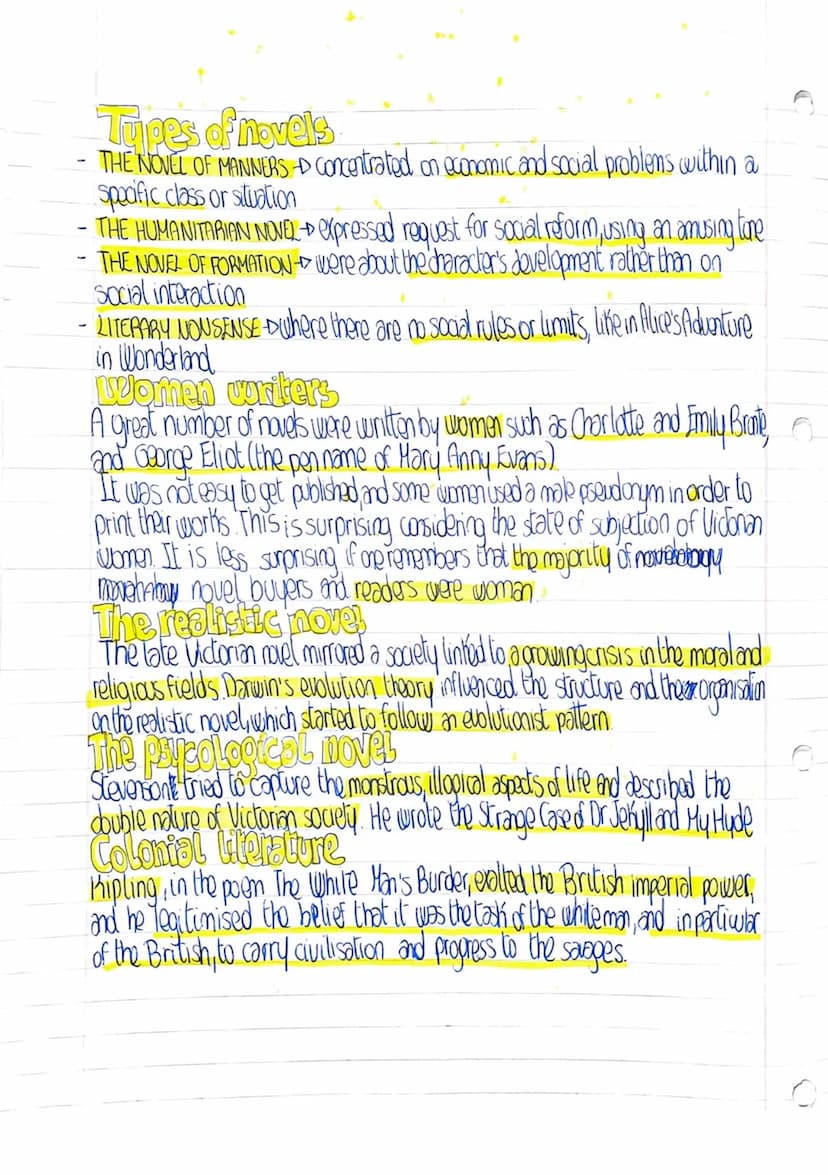 Types of novels
- THE NOVEL OF MANNERS → concentrated on economic and social problems within a
specific class or situation
- THE HUMANITARIAN NOVEL → expressed request for social reform, using an amusing tone
- THE NOVEL OF FORMATION → were about the character's development rather than on
social interaction
- LITERARY NONSENSE → where there are no social rules or limits, like in Alice's Adventure
in Wonderland
Women writers
A great number of novels were written by women such as Charlotte and Emily Bronte,
and George Eliot (the pen name of Mary Anny Evans)
It was not easy to get published, and some women used a male pseudonym in order to
print their works. This is surprising considering the state of subjection of Victorian
women. It is less surprising if one remembers that the majority of
novel buyers and readers were woman.
The realistic novel
The late Victorian novel mirrored a society linked to a growing crisis in the moral and
religious fields. Darwin's evolution theory influenced the structure and the organisation
on the realistic novel, which started to follow an evolutionist pattern
The psycological novel
Stevenson tried to capture the monstrous, illogical aspects of life and described the
double nature of Victorian society. He wrote the Strange Case of Dr Jekyll and My Hyde
Colonial literature
Kipling, in the poem The White Man's Burder, exalted the British imperial power,
and he legitimised the belief that it was the task of the white man, and in particular
of the British, to carry civilisation and progress to the savages.